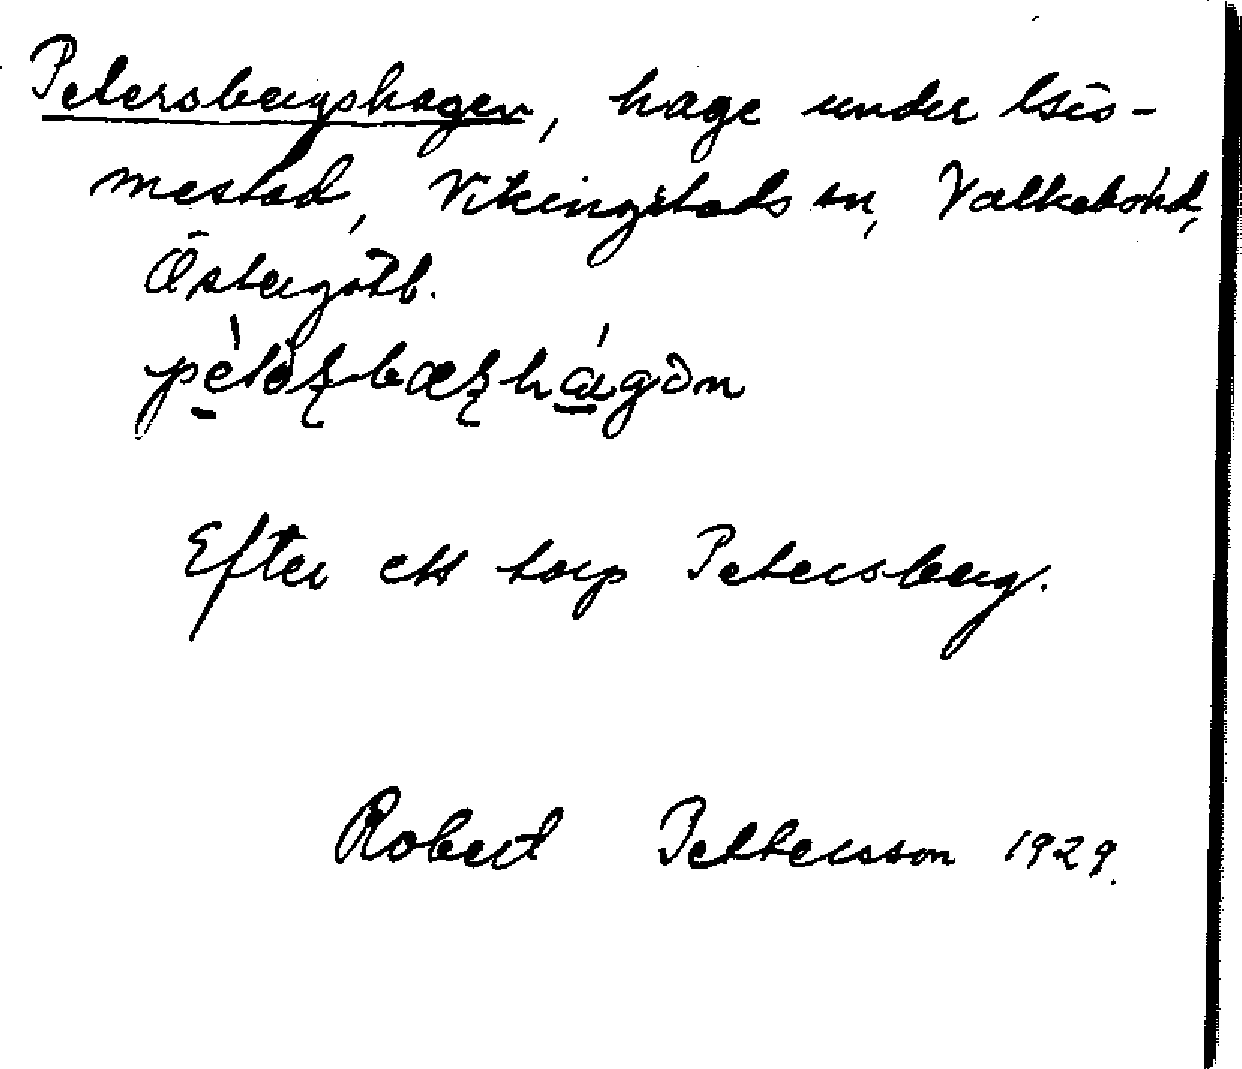 Petersbergshagen, hage under Gis-
mestad, Vikingstads sn, Valkebo hd,
Östergötl.
Efter ett torp Petersberg.
Robert Pettersson 1929.